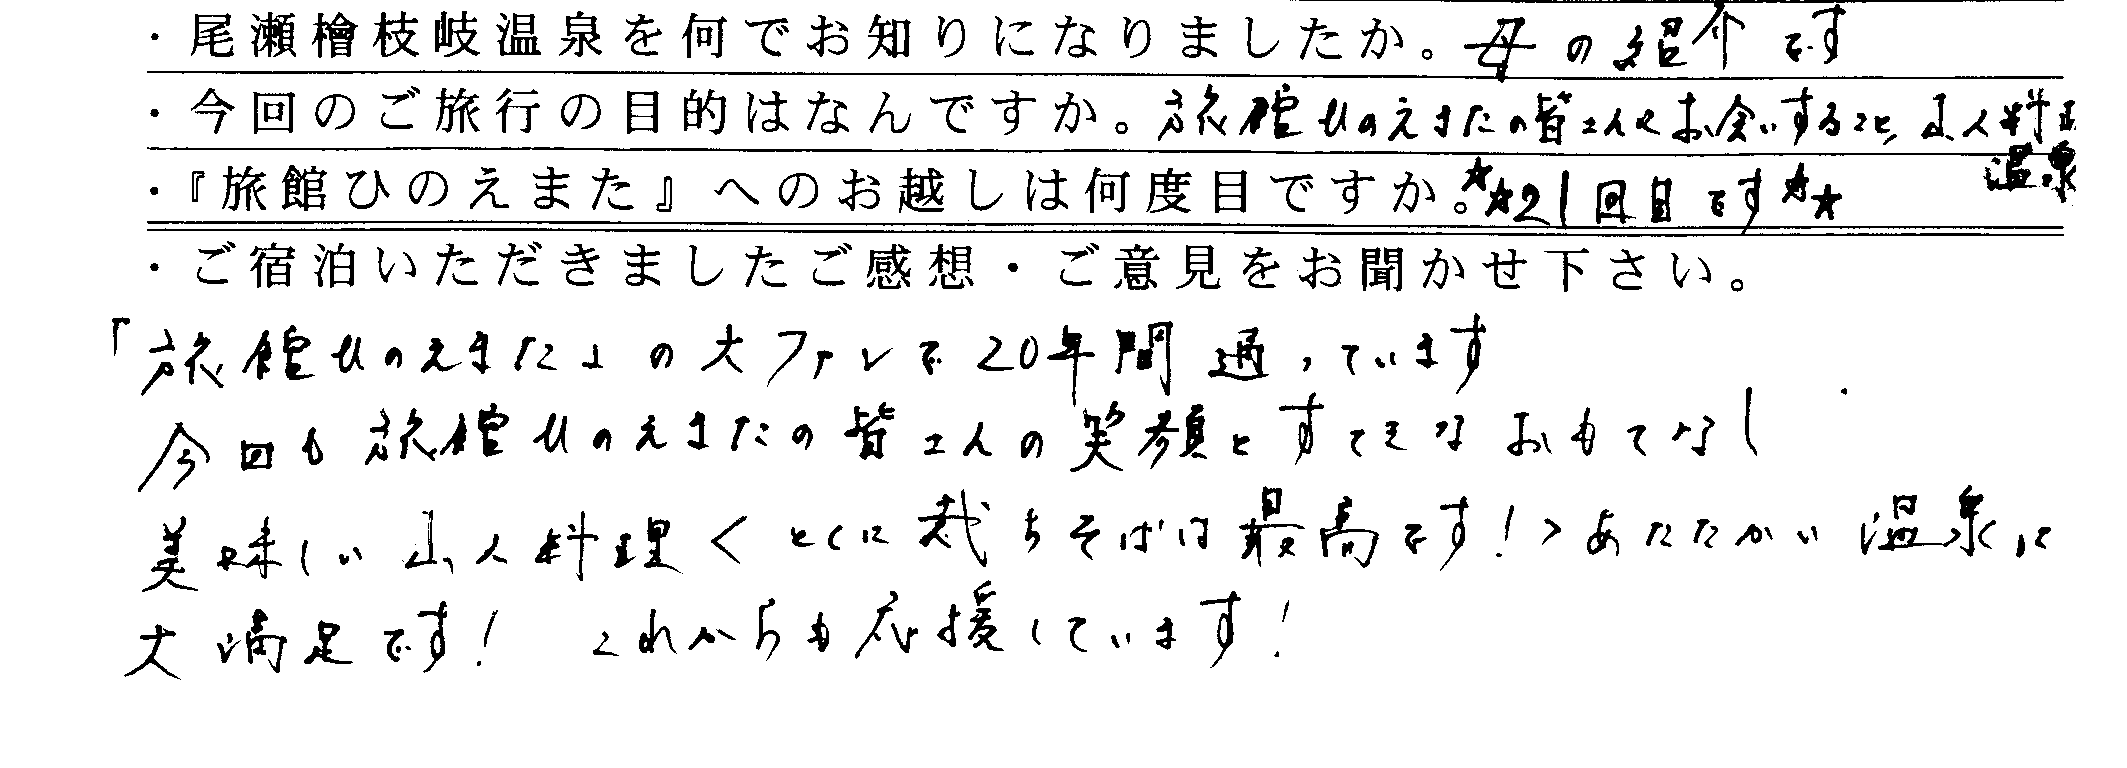 ・尾瀬檜枝岐温泉を何でお知りになりましたか。母の紹介です
・今回のご旅行の目的はなんですか。旅館ひのえまたの皆さんにお会いすること、山人料理
温泉
・『旅館ひのえまた』へのお越しは何度目ですか。☆☆21回目です☆☆
・ご宿泊いただきましたご感想・ご意見をお聞かせ下さい。
「旅館ひのえまた」の大ファンで20年間通っています
今回も旅館ひのえまたの皆さんの笑顔とすてきなおもてなし
美味しい山人料理<とくに裁ちそばは最高です!>あたたかい温泉に
大満足です! これからも応援しています!